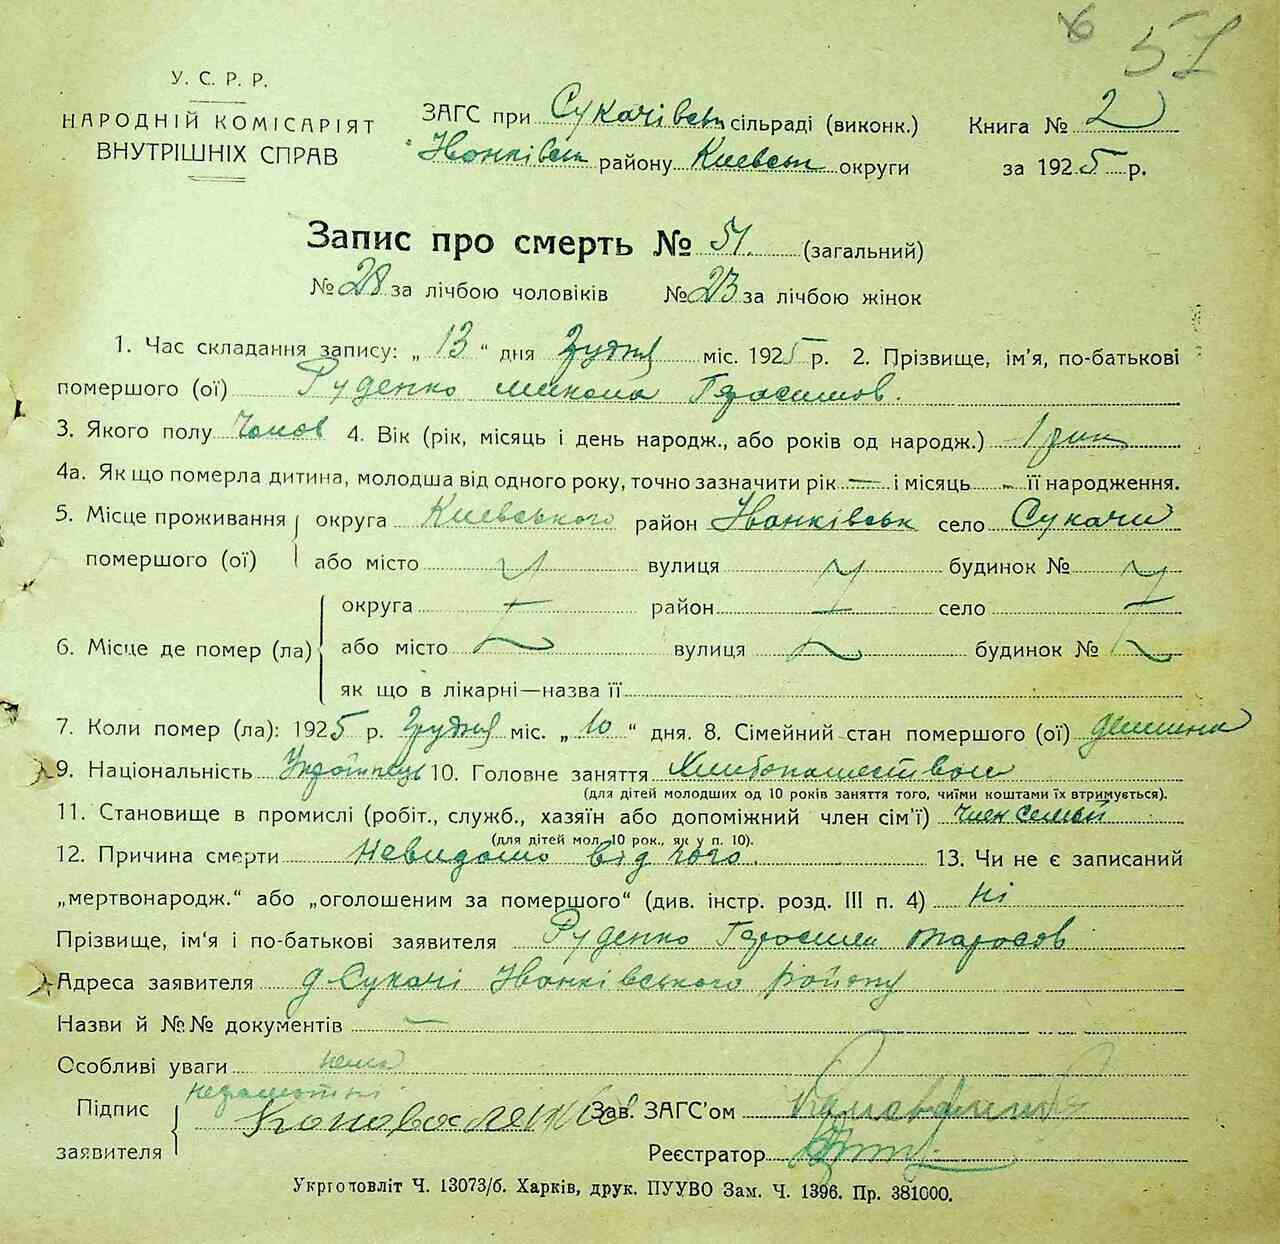 51
У. С. Р. Р.
НАРОДНІЙ КОМІСАРІЯТ
ВНУТРІШНІХ СПРАВ
ЗАГС при Сукачівськ сільраді (виконк.)
Іванківськ району Киевськ округи
Книга № 2
за 1925 р.
Запис про смерть № 51. (загальний)
№ 28 за лічбою чоловіків № 23 за лічбою жінок
1. Час складання запису: „ 13 “ дня Грудня міс. 1925 р. 2. Прізвище, ім'я, по-батькові
помершого (ої) Руденко Микола Герасимов.
3. Якого полу Чолов 4. Вік (рік, місяць і день народж., або років од народж.) 1 рик
4а. Як що померла дитина, молодша від одного року, точно зазначити рік — і місяць - її народження.
5. Місце проживання помершого (ої) округа Киевського район Іванківськ село Сукачи
або місто вулиця будинок №
6. Місце де помер (ла) округа район село
або місто вулиця будинок №
як що в лікарні—назва її
7. Коли помер (ла): 1925 р. Грудня міс. „ 10 “ дня. 8. Сімейний стан помершого (ої) дитина
9. Національність Українець 10. Головне заняття Хлибопашеством
(для дітей молодших од 10 років заняття того, чиїми коштами їх втримується).
11. Становище в промислі (робіт., служб., хазяїн або допоміжний член сім'ї) член семьи
(для дітей мол. 10 рок., як у п. 10).
12. Причина смерти Невидомо від чого. 13. Чи не є записаний
„мертвонародж.“ або „оголошеним за помершого“ (див. інстр. розд. III п. 4) ні
Прізвище, ім'я і по-батькові заявителя Руденко Герасим Тарасов
Адреса заявителя д Сукачі Іванківського району
Назви й №№ документів —
Особливі уваги нема
неграмотні
Підпис заявителя Коноваленко Зав. ЗАГС'ом
Реєстратор
Укрготовліт Ч. 13073/б. Харків, друк. ПУУВО Зам. Ч. 1396. Пр. 381000.